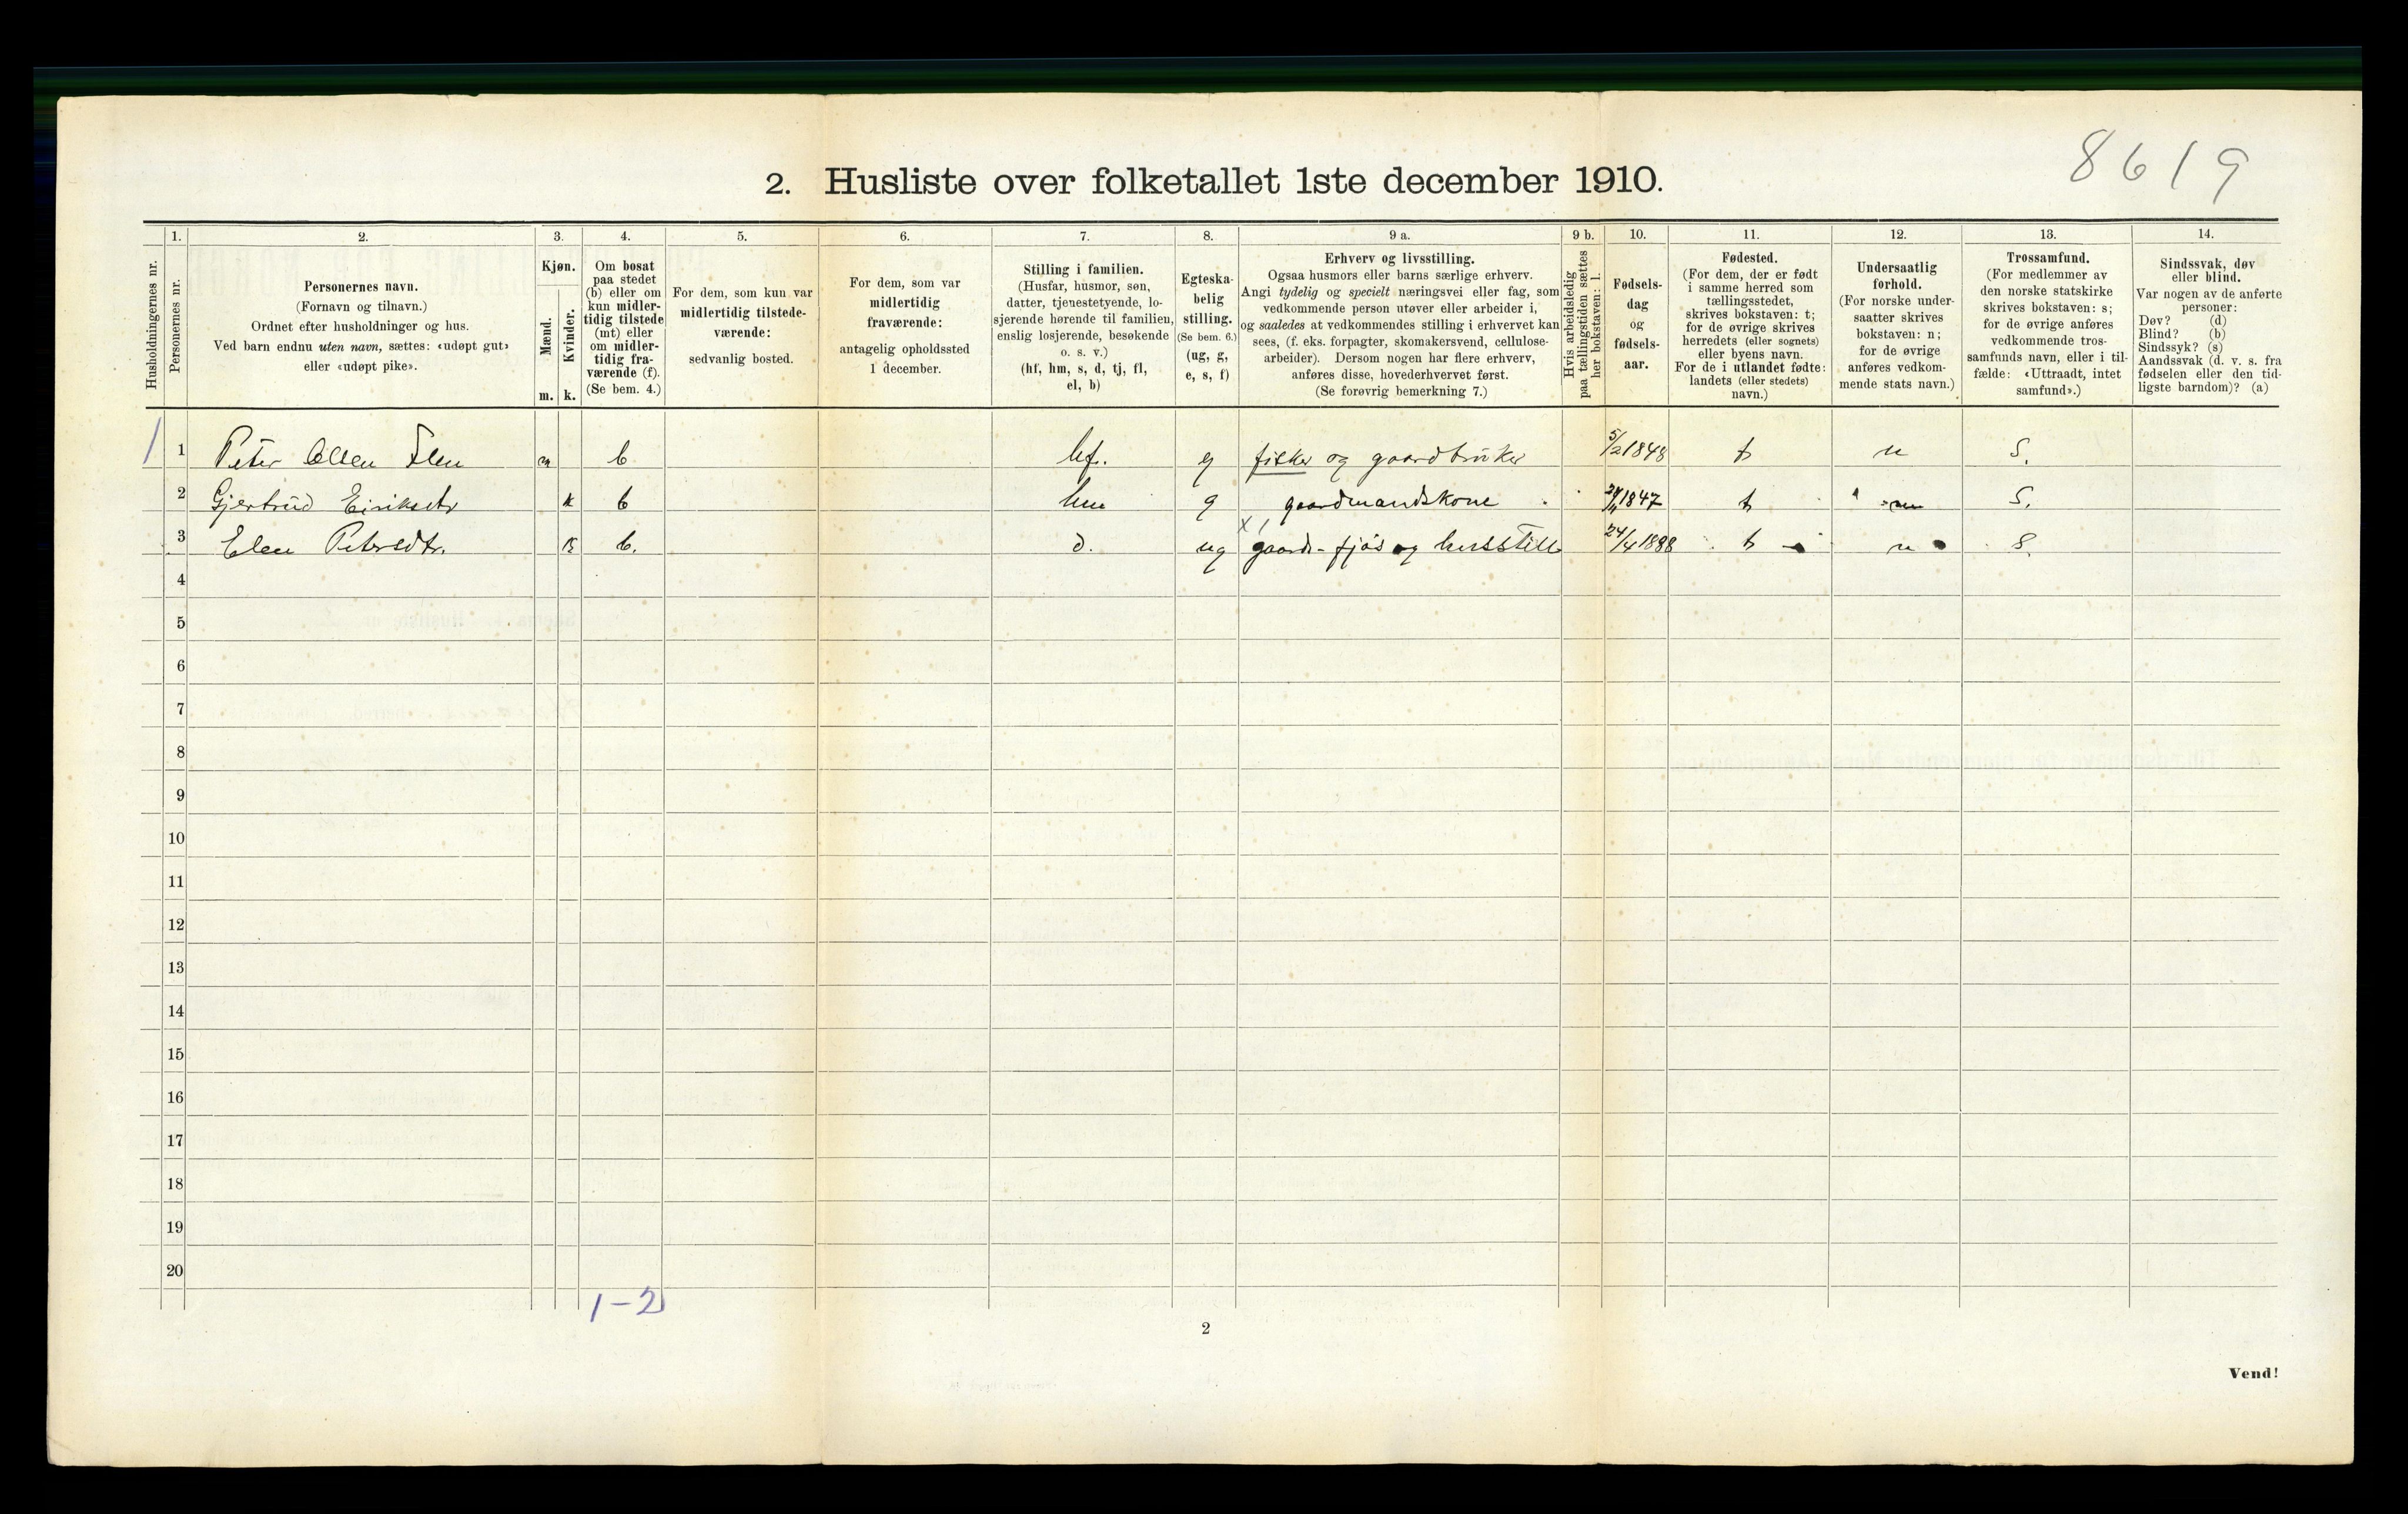 8619
2. Husliste over folketallet 1ste december 1910.
Husholdningernes nr.
1.
Personernes nr.
2.
Personernes navn.
(Fornavn og tilnavn.)
Ordnet efter husholdninger og hus.
Ved barn endnu uten navn, sættes: «udøpt gut»
eller «udøpt pike».
3.
Kjøn.
Mænd.
Kvinder.
m. k.
4.
Om bosat
paa stedet
(b) eller om
kun midler-
tidig tilstede
(mt) eller
om midler-
tidig fra-
værende (f).
(Se bem. 4.)
5.
For dem, som kun var
midlertidig tilstede-
værende:
sedvanlig bosted.
6.
For dem, som var
midlertidig
fraværende:
antagelig opholdssted
1 december.
7.
Stilling i familien.
(Husfar, husmor, søn,
datter, tjenestetyende, lo-
sjerende hørende til familien,
enslig losjerende, besøkende
o. s. v.)
(hf, hm, s, d, tj, fl,
el, b)
8.
Egteska-
belig
stilling.
(Se bem. 6.)
(ug, g,
e, s, f)
9 a.
Erhverv og livsstilling.
Ogsaa husmors eller barns særlige erhverv.
Angi tydelig og specielt næringsvei eller fag, som
vedkommende person utøver eller arbeider i,
og saaledes at vedkommendes stilling i erhvervet kan
sees, (f. eks. forpagter, skomakersvend, cellulose-
arbeider). Dersom nogen har flere erhverv,
anføres disse, hovederhvervet først.
(Se forøvrig bemerkning 7.)
9 b.
Hvis arbeidsledig
paa tællingstiden sættes
her bokstaven: l.
10.
Fødsels-
dag
og
fødsels-
aar.
11.
Fødested.
(For dem, der er født
i samme herred som
tællingsstedet,
skrives bokstaven: t;
for de øvrige skrives
herredets (eller sognets)
eller byens navn.
For de i utlandet fødte:
landets (eller stedets)
navn.)
12.
Undersaatlig
forhold.
(For norske under-
saatter skrives
bokstaven: n;
for de øvrige
anføres vedkom-
mende stats navn.)
13.
Trossamfund.
(For medlemmer av
den norske statskirke
skrives bokstaven: s;
for de øvrige anføres
vedkommende tros-
samfunds navn, eller i til-
fælde: «Uttraadt, intet
samfund».)
14.
Sindssvak, døv
eller blind.
Var nogen av de anførte
personer:
Døv? (d)
Blind? (b)
Sindssyk? (s)
Aandssvak (d. v. s. fra
fødselen eller den tid-
ligste barndom)? (a)
1 1 Peter Olsen m b hf. g fisker og gaardbruker 5/2 1848 t n S.
2 Gjertrud Eiriksdtr k b hm g gaardmandskone 1847 t n S.
3 Elen Petersdtr. k b. d. ug gaards-fjøs og husstell 24/4 1888 t n S.
4
5
6
7
8
9
10
11
12
13
14
15
16
17
18
19
20
1-2
2
Vend!